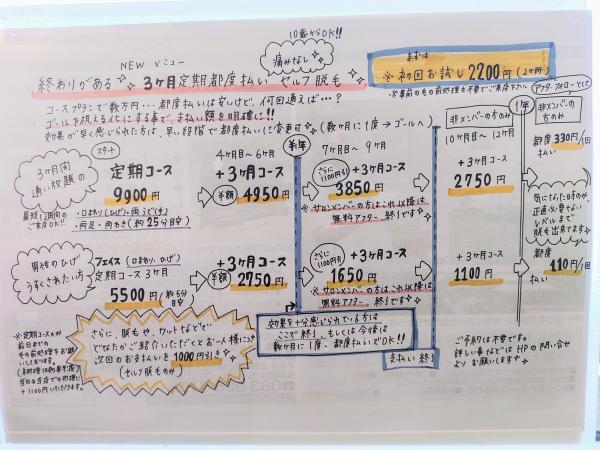 10歳からOK!!
NEW メニュー
痛みなし
まずは
※初回お試し 2200円 (2ヶ所)
※事前の毛の前処理も不要でご来店下さい
終わりがある 3ヶ月定期都度払い セルフ脱毛
コースプランで数万円…都度払いは安いけど、何回通えば…?
ゴールを見える化にする事で、支払い額を明確に!!
効果が早く感じられた方は、早い段階で都度払いに変更可 (数ヶ月に1度→ゴールへ)
アフターフォローとして
1年
非メンバーの方のみ
10ヶ月目〜12ヶ月
非メンバーの方のみ
都度 330円/1回
払い
3ヶ月間
通い放題の
最短1週間の
ご来店OK!!
スタート
定期コース
9900円
・口まわり(ひげ)・両うで(手)
・両足・両わき (約25分目安)
4ヶ月目〜6ヶ月
+3ヶ月コース
半額 4950円
半年
7ヶ月目〜9ヶ月
さらに1100円引
+3ヶ月コース
3850円
※サロンメンバーの方はこれ以降は
無料アフター 終了です
+3ヶ月コース
2750円
気になった時のみ
正直必要ない
レベルまで
脱毛出来てます
男性のひげ
うすくされたい方
フェイス (口まわり、ひげ)
定期コース3ヶ月
5500円 (約5分目安)
+3ヶ月コース
半額 2750円
さらに1100円引
+3ヶ月コース
1650円
※サロンメンバーの方はこれ以降は
無料アフター 終了です
+3ヶ月コース
1100円
都度 110円/1回
払い
※定期コースのみ
前日までの
毛の前処理をお願い
しております。
当日の当店での処理に
+1100円いただきます。
さらに、脱毛や、ワットなどで
どなたかご紹介いただくとお一人様につき
次回のお支払いを1000円引き
(セルフ脱毛のみ)
効果を十分感じられている方は
ここで終了、もしくは今後は
数ヶ月に1度、都度払いでOK!!
支払い終了
ご予約は不要です。
詳しい事などはHPの問い合せ
よりお願いします